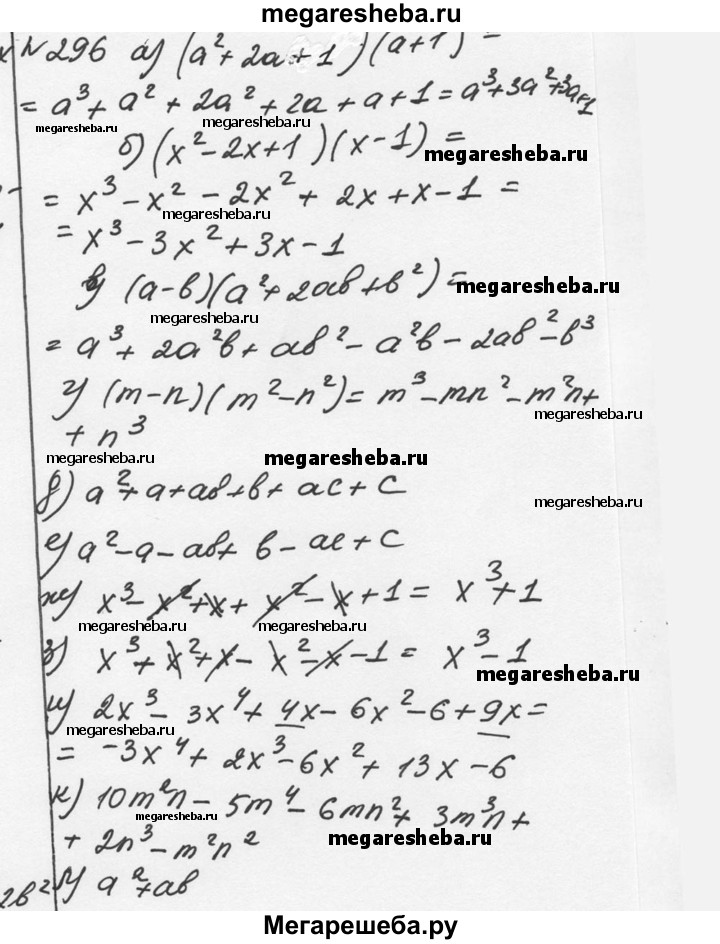 megaresheba.ru
N 296 а) (a²+2a+1)(a+1) =
= a³+a²+2a²+2a+a+1=a³+3a²+3a+1
megaresheba.ru
б) (x²-2x+1)(x-1) =
megaresheba.ru
= x³-x²-2x²+2x+x-1 =
megaresheba.ru
= x³-3x²+3x-1
в) (a-b)(a²+2ab+b²)=
megaresheba.ru
megaresheba.ru
= a³+2a²b+ab²-a²b-2ab²-b³
г) (m-n)(m²-n²)= m³-mn²-m²n+
megaresheba.ru
+n³
megaresheba.ru
megaresheba.ru
д) a²+a+ab+b+ac+c
megaresheba.ru
е) a²-a-ab+b-ac+c
ж) x³-x²+x+x²-x+1= x³+1
megaresheba.ru
megaresheba.ru
з) x³+x²+x-x²-x-1= x³-1
megaresheba.ru
и) 2x³-3x⁴+4x-6x²-6+9x=
megaresheba.ru
= -3x⁴+2x³-6x²+13x-6
к) 10m²n-5m⁴-6mn²+3m³n+
megaresheba.ru
+2n³-m²n²
megaresheba.ru
2b²
л) a²+ab
Мегарешеба.ру